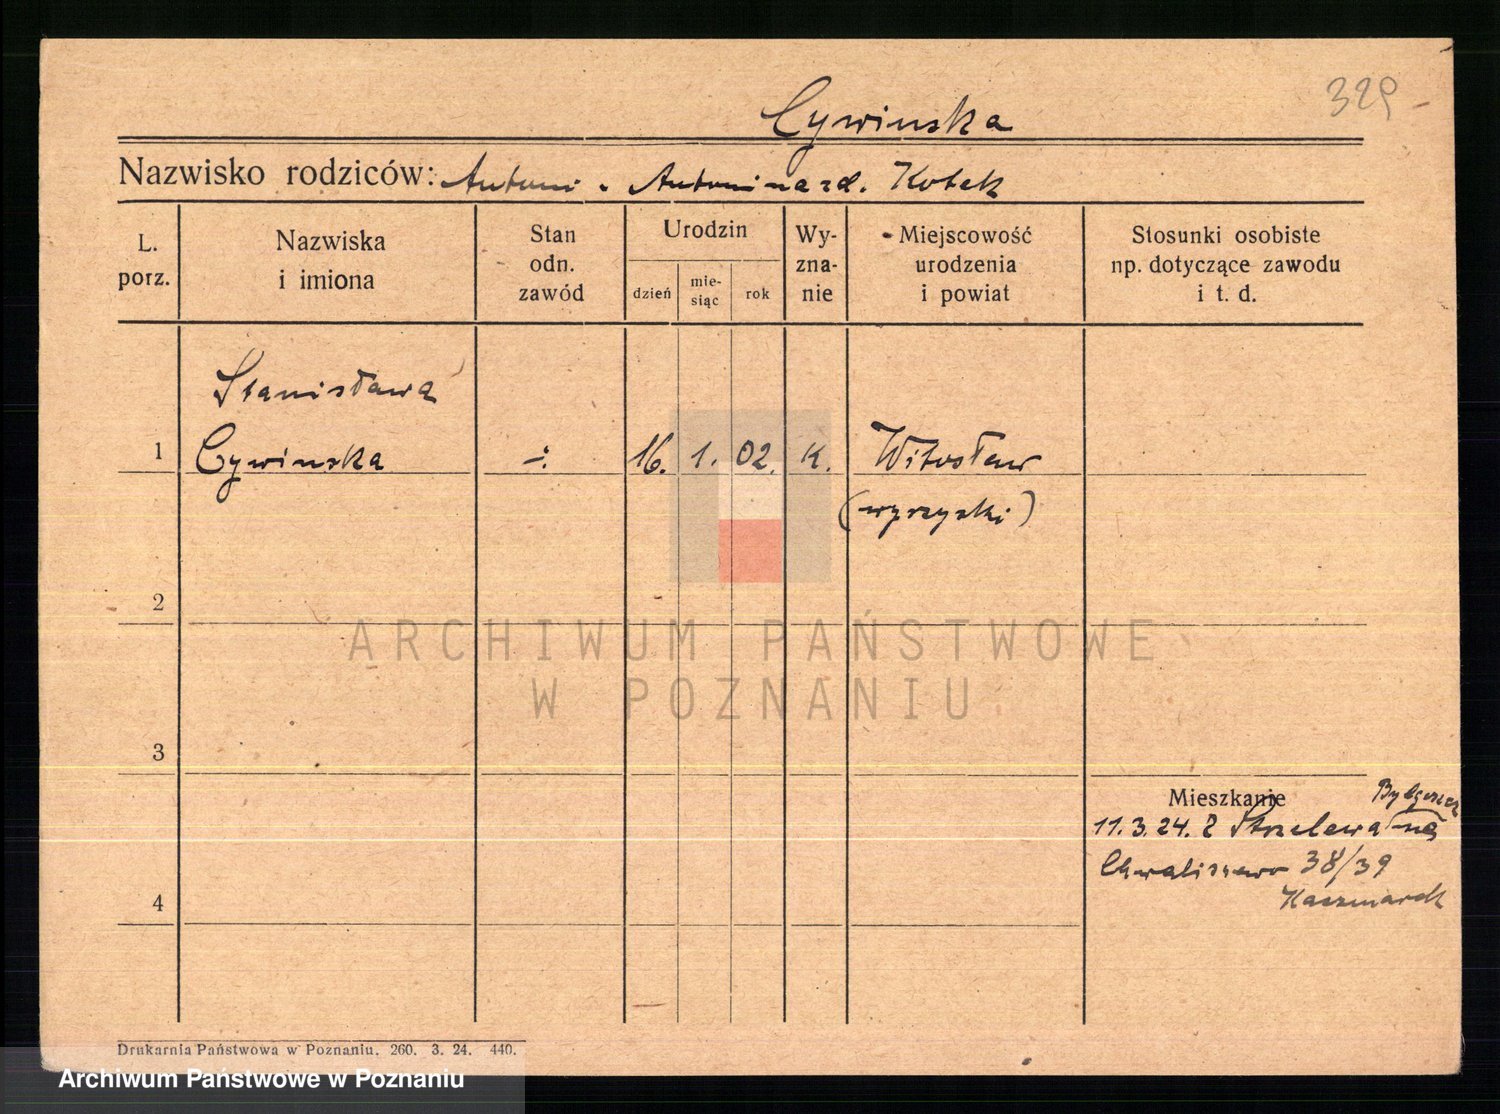 329
Cywinska
Nazwisko rodziców: Antoni . Antonina zd. Kotek
L. porz.
Nazwiska i imiona
Stan odn. zawód
Urodzin
dzień
mie-siąc
rok
Wy-zna-nie
Miejscowość urodzenia i powiat
Stosunki osobiste np. dotyczące zawodu i t. d.
Stanisława
1 Cywinska -:- 16. 1. 02. K. Witosław
(wyrzyski)
2
ARCHIWUM PAŃSTWOWE
W POZNANIU
3
Mieszkanie
11.3.24. z Strzelewa
Chwaliszewo 38/39
Kaczmarek
4
Drukarnia Państwowa w Poznaniu. 260. 3. 24. 440.
Archiwum Państwowe w Poznaniu